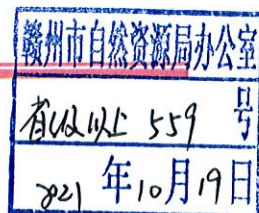 赣州市自然资源局办公室
省级以上 559 号
2021 年10月19日